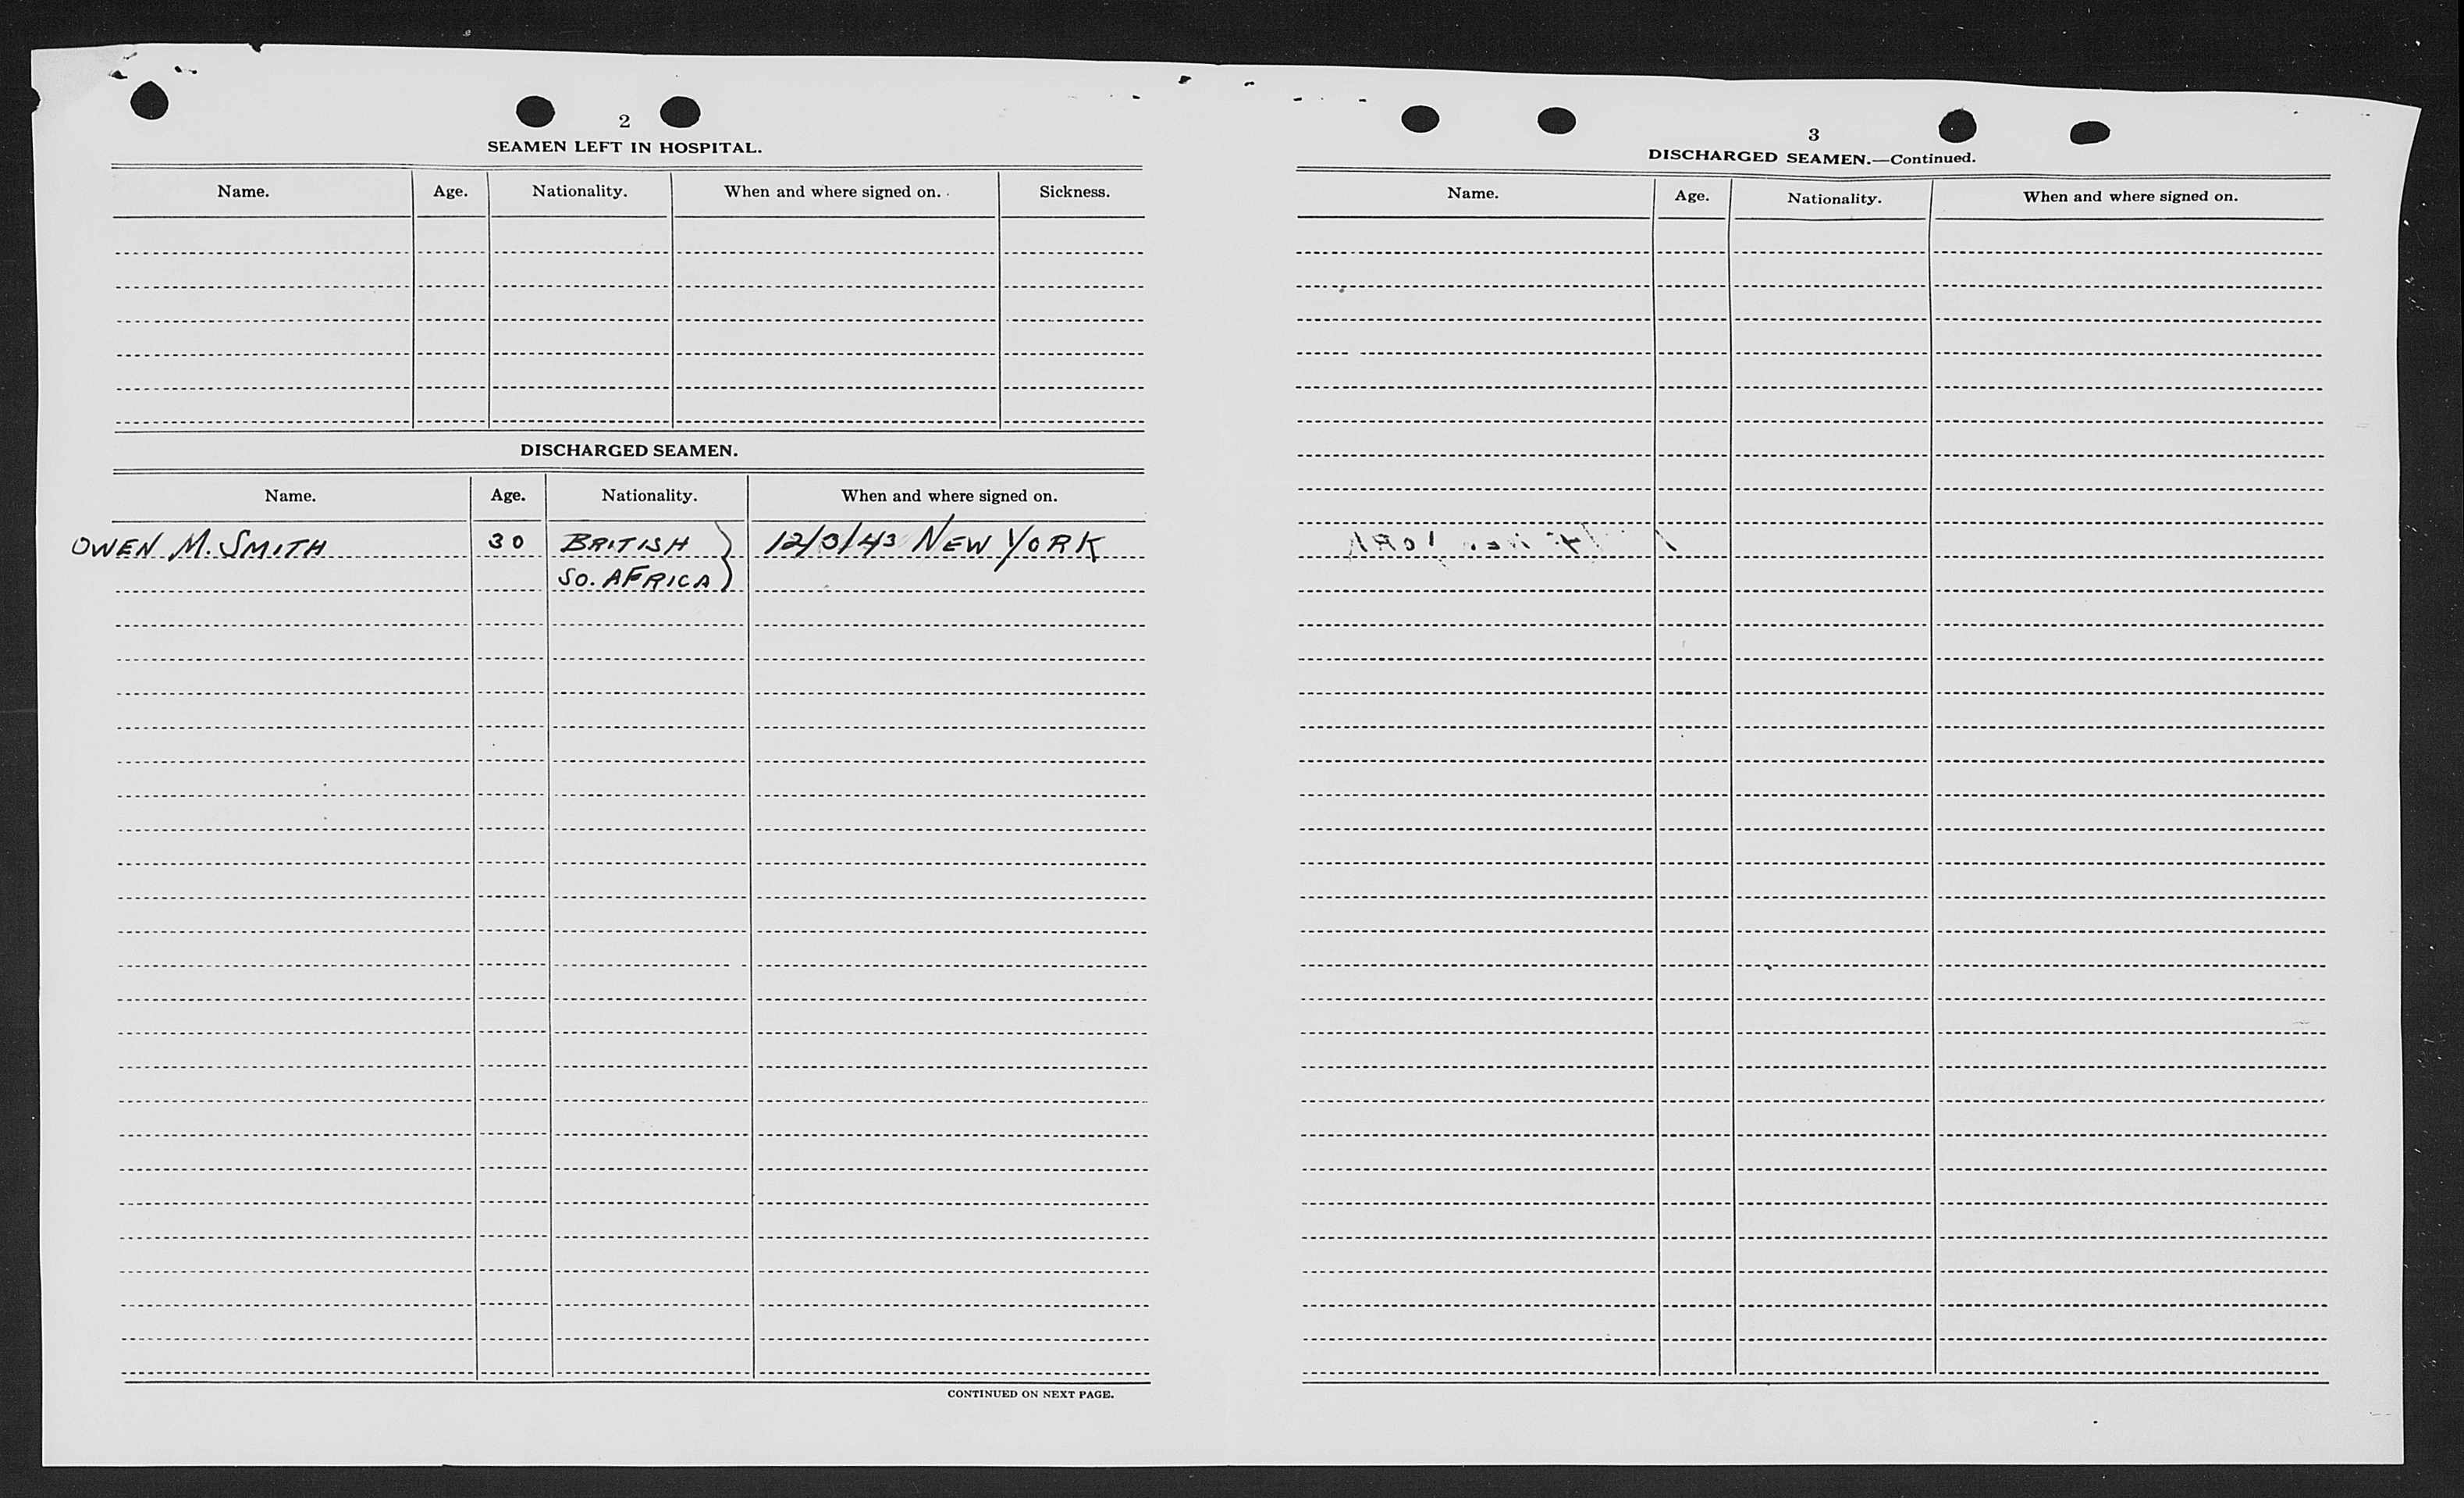 2
SEAMEN LEFT IN HOSPITAL.
Name. Age. Nationality. When and where signed on. Sickness.
DISCHARGED SEAMEN.
Name. Age. Nationality. When and where signed on.
OWEN M. SMITH 30 BRITISH } 12/3/43 NEW YORK
SO. AFRICA }
CONTINUED ON NEXT PAGE.
3
DISCHARGED SEAMEN.—Continued.
Name. Age. Nationality. When and where signed on.